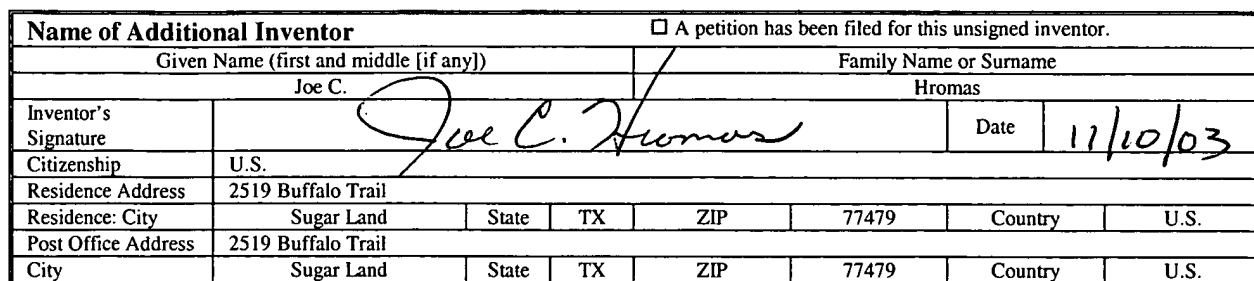 Name of Additional Inventor ☐ A petition has been filed for this unsigned inventor.
Given Name (first and middle [if any]) Family Name or Surname
Joe C. Hromas
Inventor's Signature Joe C. Hromas Date 11/10/03
Citizenship U.S.
Residence Address 2519 Buffalo Trail
Residence: City Sugar Land State TX ZIP 77479 Country U.S.
Post Office Address 2519 Buffalo Trail
City Sugar Land State TX ZIP 77479 Country U.S.